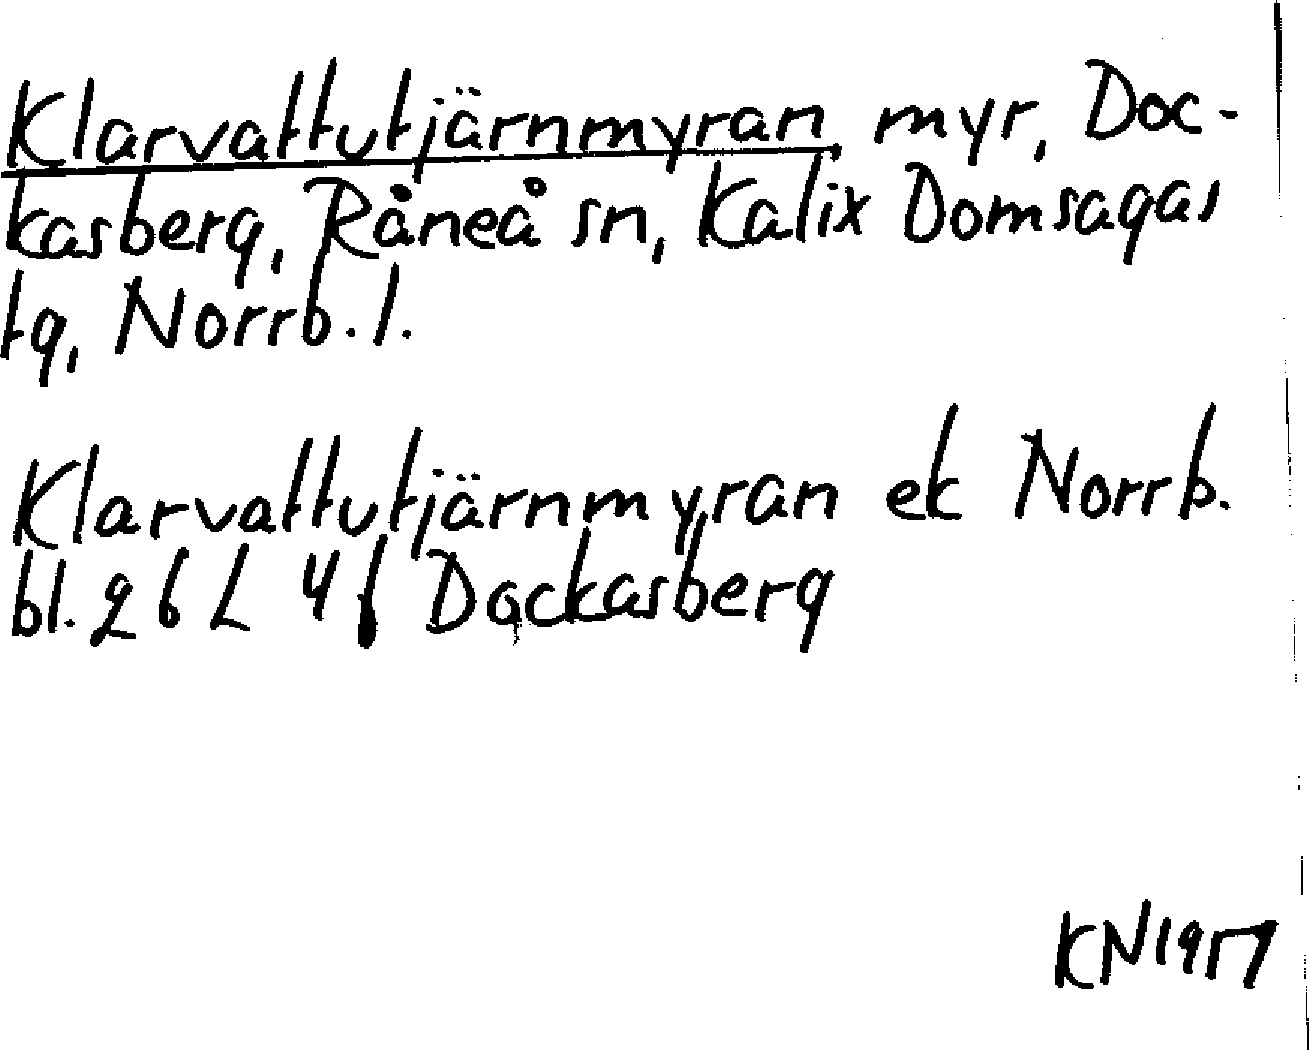 Klarvattutjärnmyran, myr, Doc-
kasberg, Råneå sn, Kalix Domsagas
tg, Norrb. l.
Klarvattutjärnmyran ek Norrb.
bl. 26 L 4 f Dockasberg